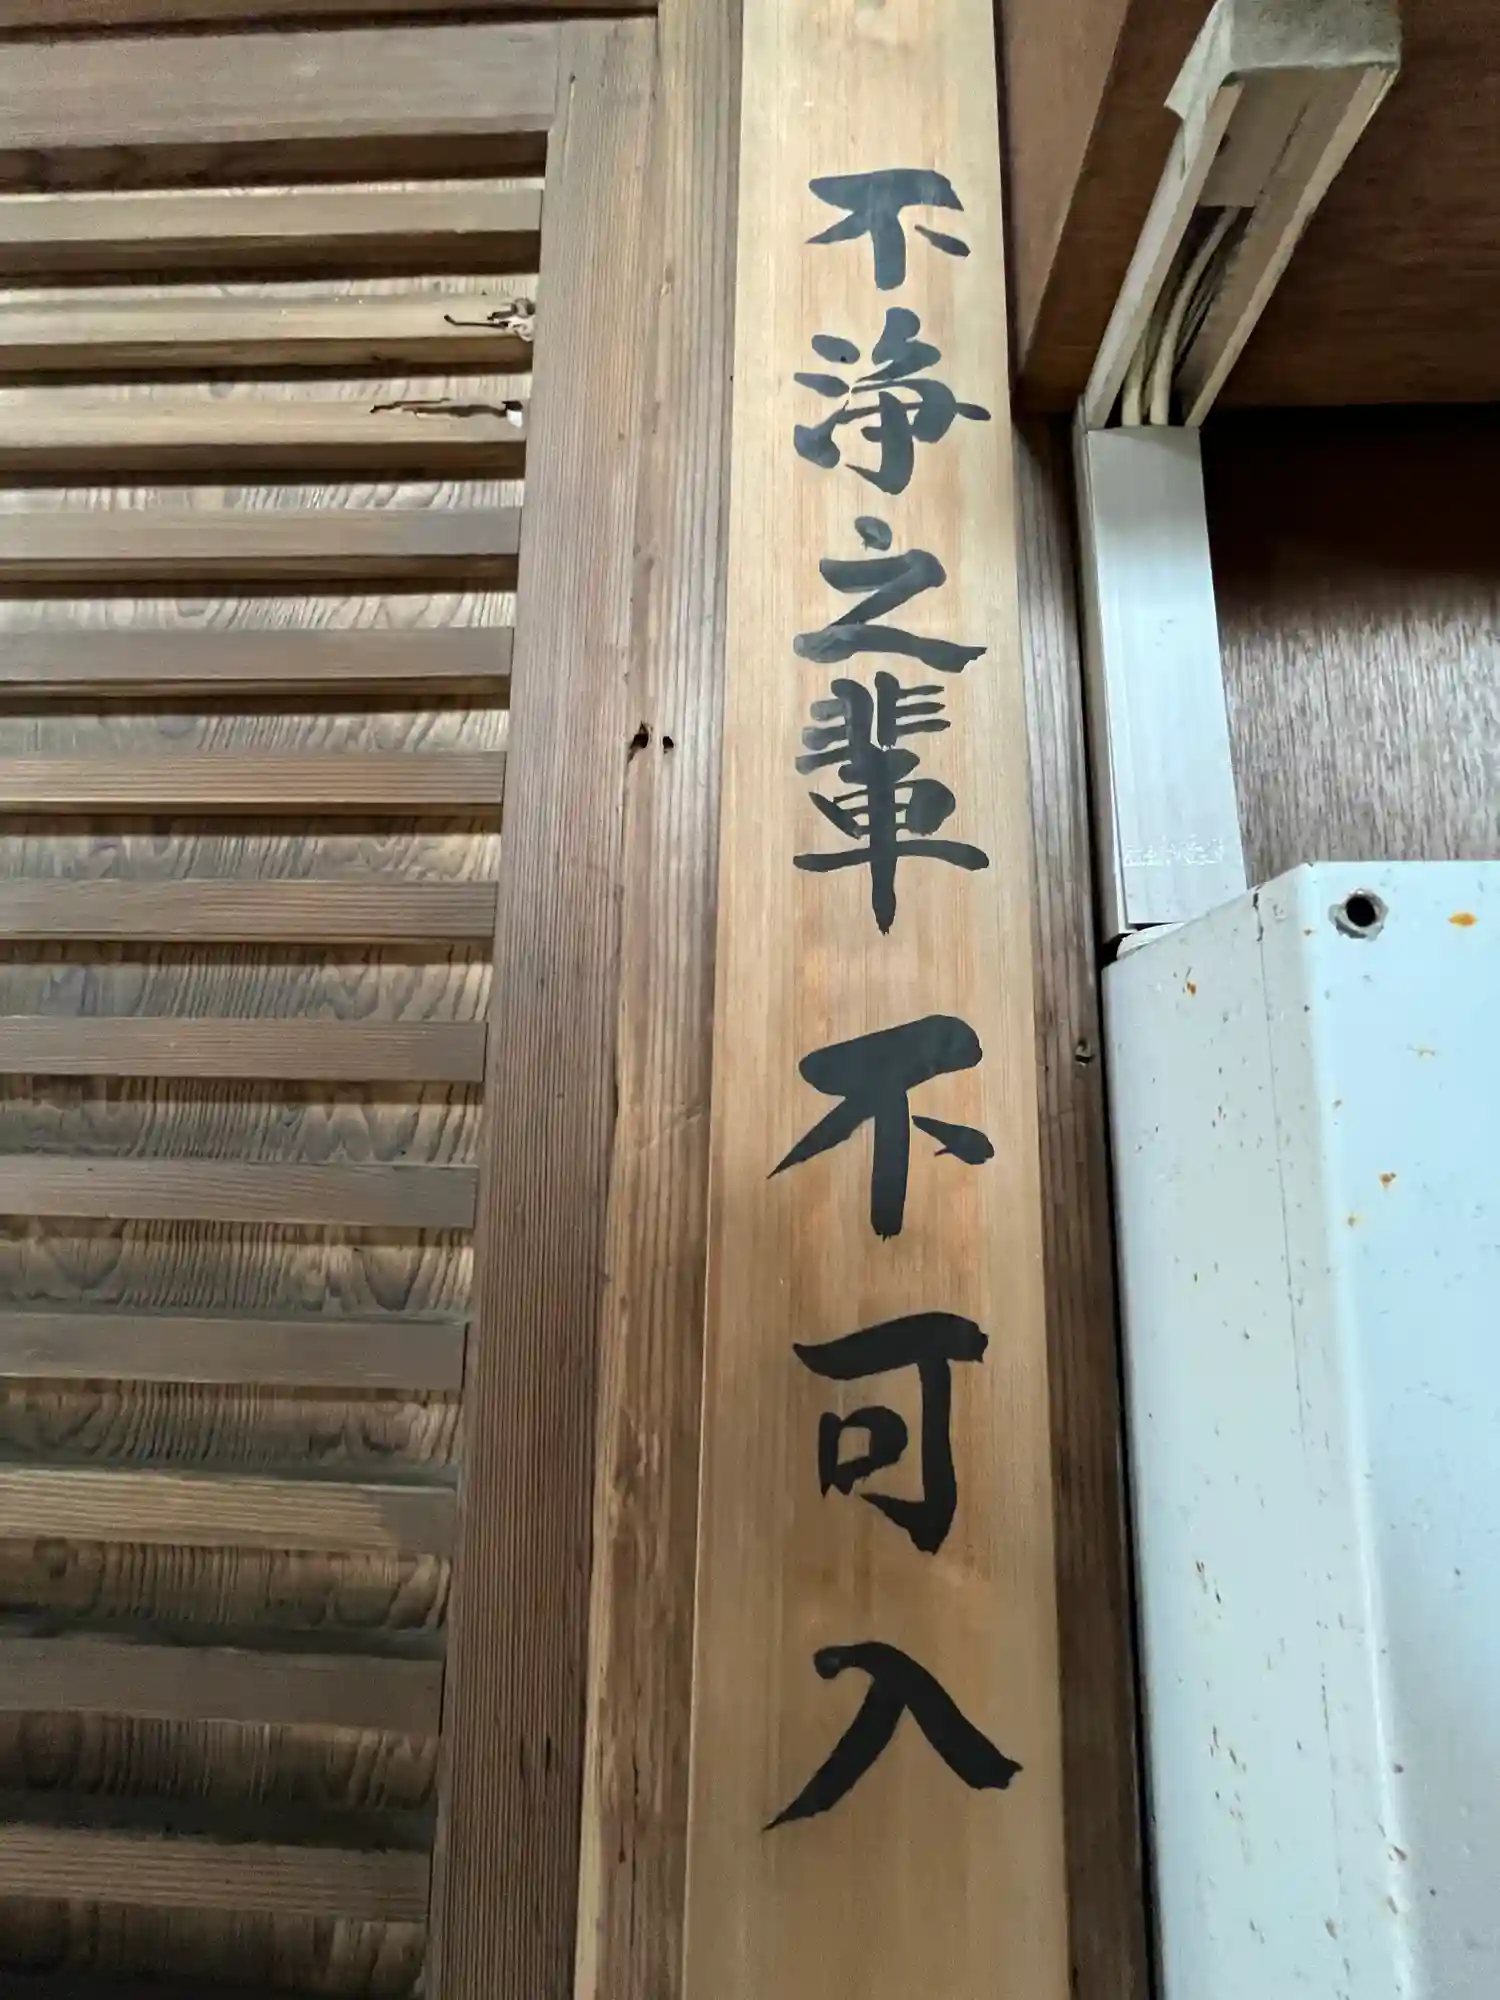 不浄之輩不可入